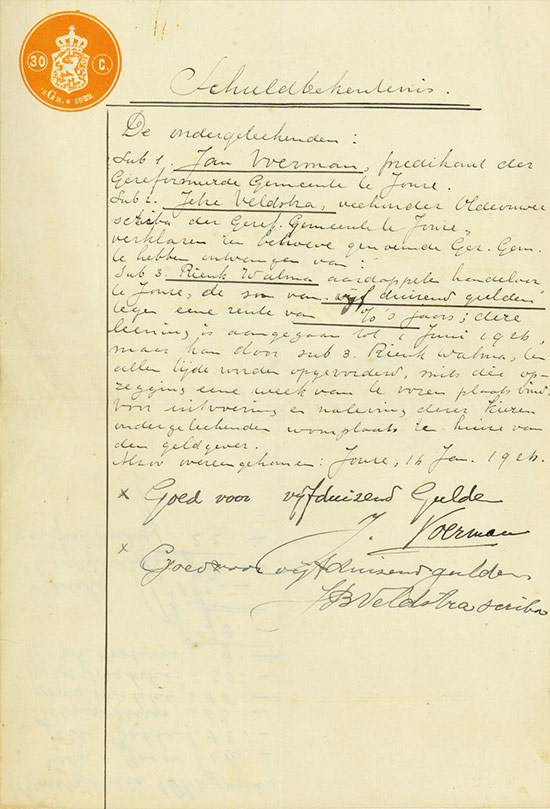 30 C.
'S GR. * 1922
Schuldbekentenis.
De ondergeteekenden:
Sub 1. Jan Voerman, predikant der
Gereformeerde Gemeente te Joure.
Sub 2. Veldstra, veehouder Oldeouwer
scriba der Geref. Gemeente te Joure,
verklaren ten behoeve genoemde Ger. Gem.
te hebben ontvangen van:
Sub 3. Rienk Walma aardappelen handelaar
te Joure, de som van vijf duizend gulden
tegen eene rente van % 's jaars; deze
leening is aangegaan tot 1 Juni 1926,
maar kan door sub 3. Rienk Walma, te
allen tijde worden opgevorderd, mits die op-
zegging eene week van te voren plaats vind.
Voor uitvoering en naleving dezer kiezen
ondergeteekenden woonplaats ten huize van
den geldgever.
Alzoo overeengekomen: Joure, 14 Jan. 1926.
x Goed voor vijfduizend Gulden
J. Voerman
x Goed voor vijfduizend gulden
Veldstra scriba